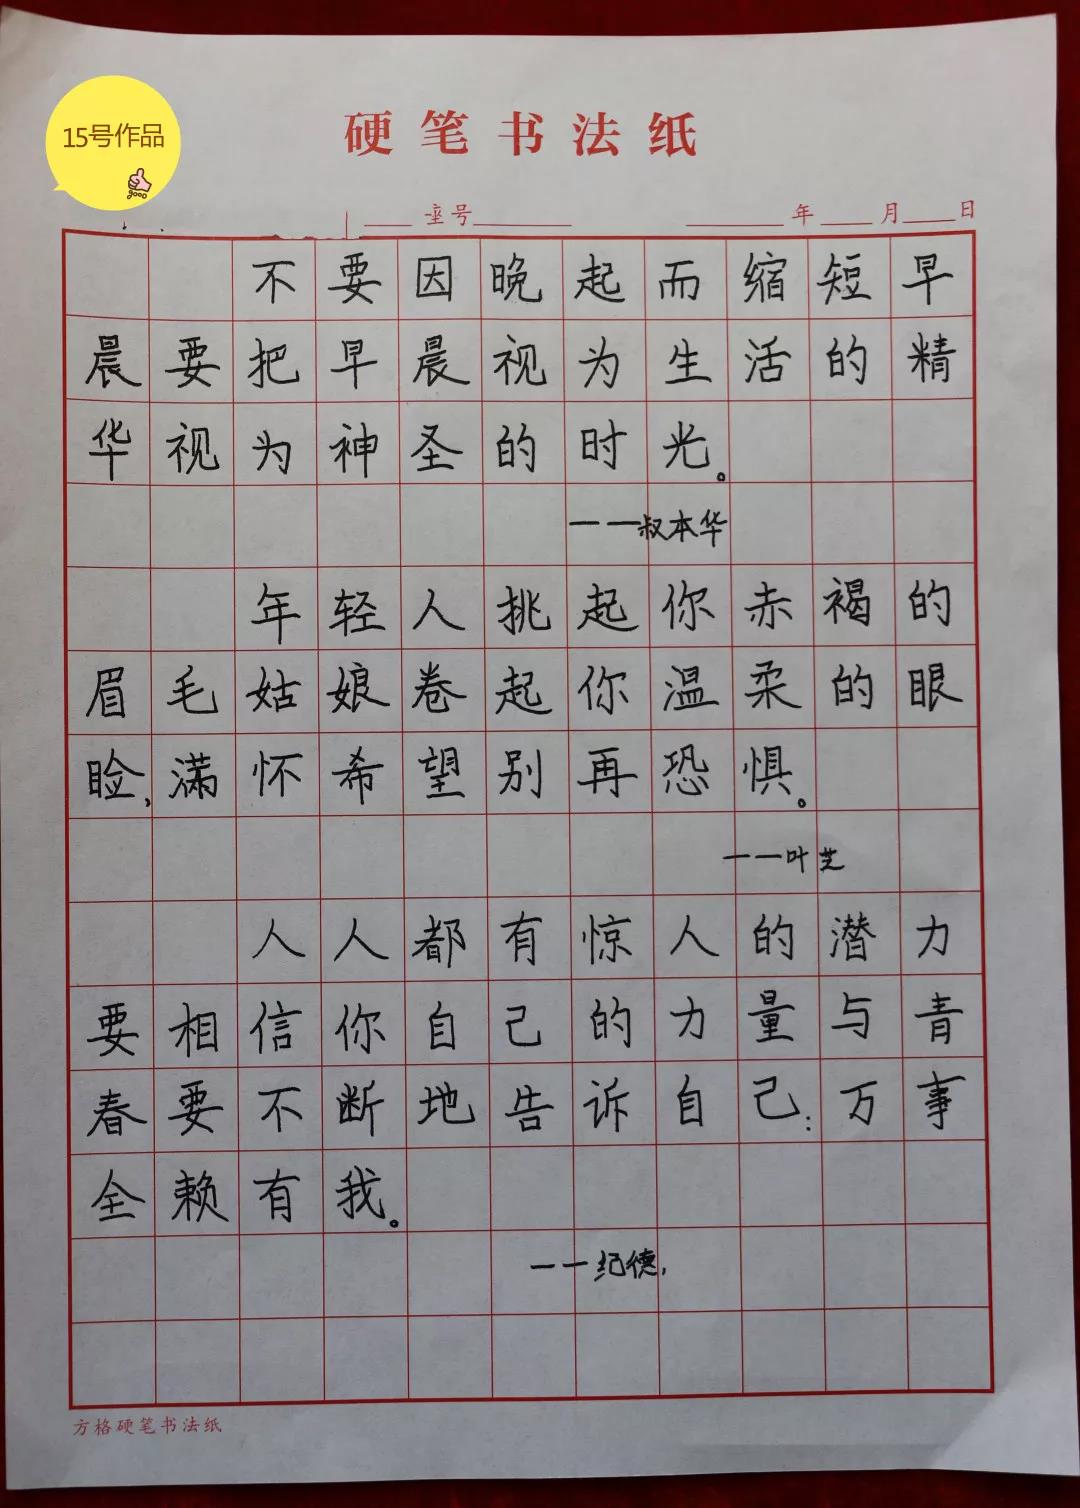 15号作品
good
硬笔书法纸
座号 年 月 日
不要因晚起而缩短早
晨要把早晨视为生活的精
华视为神圣的时光。
——叔本华
年轻人挑起你赤褐的
眉毛姑娘卷起你温柔的眼
睑,满怀希望别再恐惧。
——叶芝
人人都有惊人的潜力
要相信你自己的力量与青
春要不断地告诉自己:万事
全赖有我。
——纪德,
方格硬笔书法纸